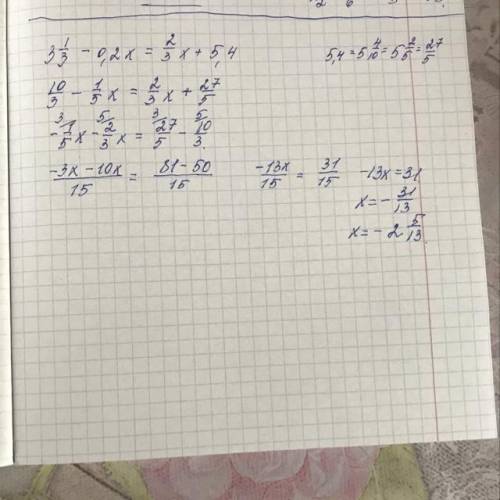 3 1/3 - 0,2x = 2/3 x + 5,4
5,4 = 5 4/10 = 5 2/5 = 27/5
10/3 - 1/5 x = 2/3 x + 27/5
3 5 3 5
- 1/5 x - 2/3 x = 27/5 - 10/3
(-3x - 10x)/15 = (81 - 50)/15
-13x/15 = 31/15
-13x = 31
x = - 31/13
x = - 2 5/13